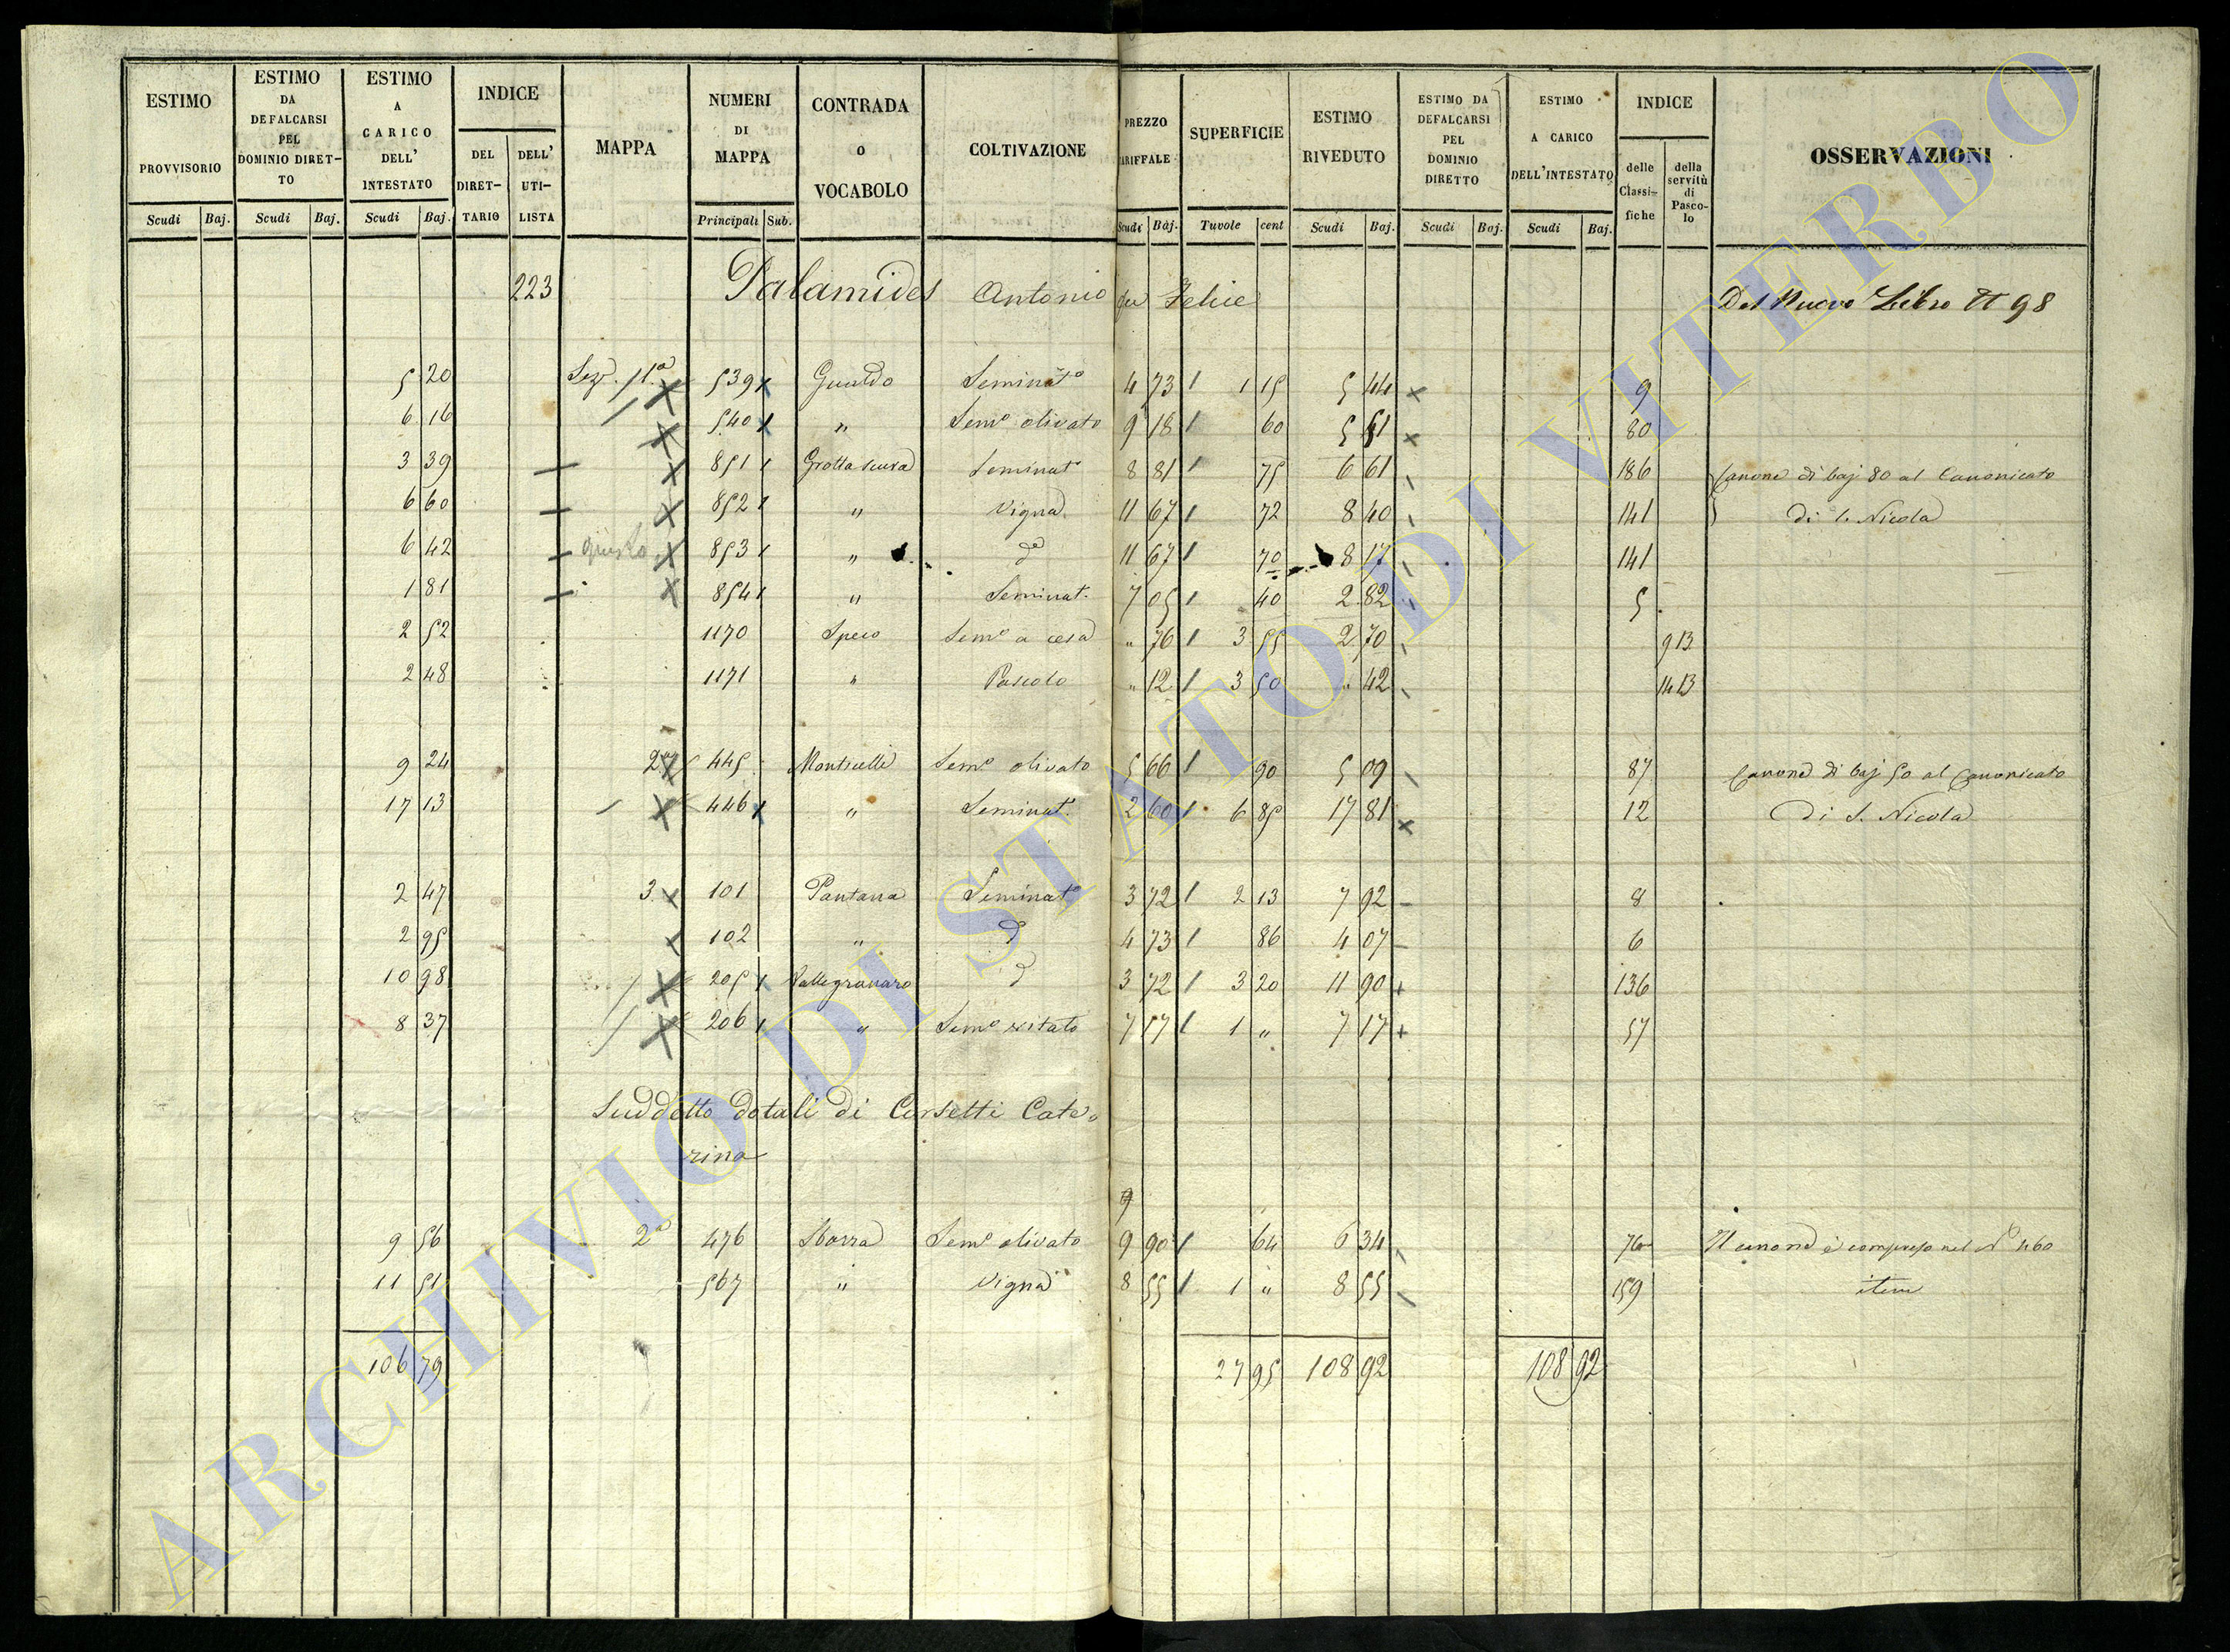 ESTIMO PROVVISORIO Scudi Baj.
ESTIMO DA DEFALCARSI PEL DOMINIO DIRET-TO Scudi Baj.
ESTIMO A CARICO DELL' INTESTATO Scudi Baj.
INDICE DEL DIRET-TARIO DELL' UTI-LISTA
MAPPA
NUMERI DI MAPPA Principali Sub.
CONTRADA O VOCABOLO
COLTIVAZIONE
PREZZO TARIFFALE Scudi Baj.
SUPERFICIE Tavole cent
ESTIMO RIVEDUTO Scudi Baj.
ESTIMO DA DEFALCARSI PEL DOMINIO DIRETTO Scudi Baj.
ESTIMO A CARICO DELL'INTESTATO Scudi Baj.
INDICE delle Classi-fiche della servitù di Pasco-lo
OSSERVAZIONI
223 Palamides Antonio fu Felice Del Nuovo Libro 98
5 20 Sez. 1ª 539 Gualdo Seminato 4 73 1 15 5 44 9
6 16 540 " Semo olivato 9 18 60 5 51 80
3 39 851 Grotta scura Seminato 8 81 75 6 61 186 Canone di baj 80 al Canonicato
6 60 852 " Vigna 11 67 72 8 40 141 di S. Nicola
6 42 giusto 853 " do 11 67 70 8 17 141
1 81 854 " Seminat. 7 05 40 2 82 5
2 52 1170 Speco Semo a cesa " 76 3 55 2 70 9 13
2 48 1171 " Pascolo " 12 3 50 " 42 14 13
9 24 2ª 445 Monticelli Semo olivato 5 66 90 5 09 87 Canone di baj 50 al Canonicato
17 13 446 " Seminat. 2 60 6 85 17 81 12 di S. Nicola
2 47 3 101 Pantana Seminato 3 72 2 13 7 92 8
2 95 102 " d 4 73 86 4 07 6
10 98 205 Vallegranaro d 3 72 3 20 11 90 136
8 37 206 " Semo vitato 7 17 1 " 7 17 57
Suddetto dotali di Corsetti Cate=
rina
9
9 56 2ª 476 Sbarra Semo olivato 9 90 64 6 34 76 Il canone è compreso nel No 460
11 51 567 " Vigna 8 55 1 " 8 55 159 item
106 79 27 95 108 92 108 92
ARCHIVIO DI STATO DI VITERBO